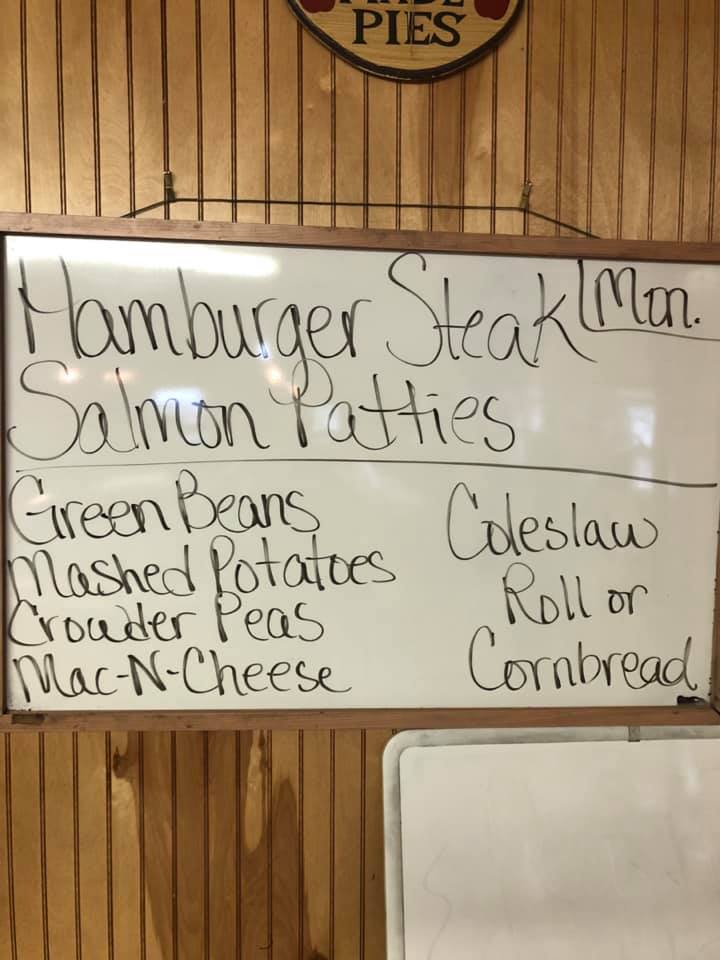 PIES
Hamburger Steak Mon.
Salmon Patties
Green Beans
Mashed Potatoes
Crowder Peas
Mac-N-Cheese
Coleslaw
Roll or
Cornbread